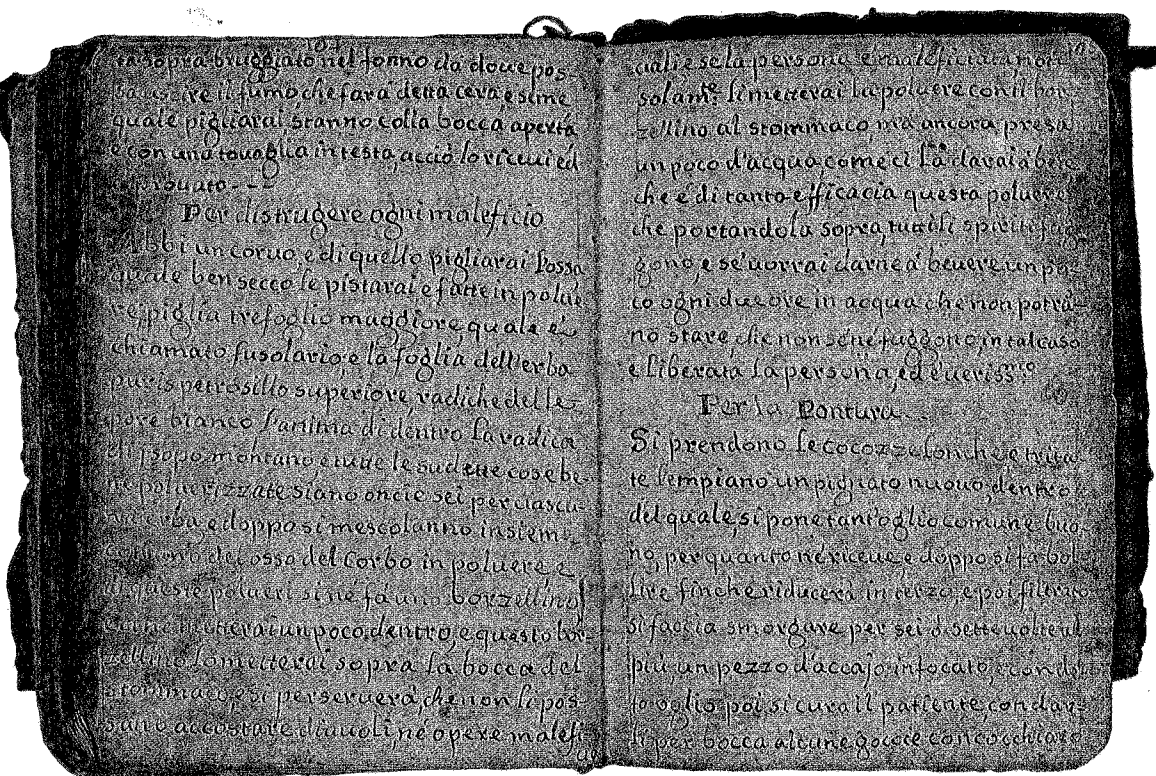 ta sopra bruggiato nel forno da doue pos-
sa uscire il fumo, che fara detta cera, e sime
quale pigliarai stanno colla bocca aperta
e con una touaglia in testa, acciò lo riceui ed
è prouato---
Per distrugere ogni maleficio
Abbi un coruo, e di quello pigliarai l'ossa
quale ben secco le pistarai e fatte in polue
re, piglia trefoglio maggiore, quale é
chiamato fusolario, e la foglia dell'erba
petrosillo superiore, radiche del le-
pore bianco l'anima di dentro la radica
d'isopo montano e tutte le sudette cose be-
ne poluerizzate siano oncie sei per ciascu-
na erba e doppo si mescolanno insieme
coll'ossa del Corbo in poluere e
di queste polueri si ne fà uno borzellino
e ci ne metterai un poco dentro, e questo bor-
zellino lo metterai sopra la bocca del
stommaco, e si perseruerà, che non li pos
sano accostare diauoli, né opere malefi-
ciali e se la persona è maleficiata, non
solam.te li metterai la poluere con il bor-
zellino al stommaco, ma ancora presa
un poco d'acqua, come ci la darai a bere
che è di tanto efficacia questa poluere
che portandola sopra, tutti li spiriti fug-
gono, e se uorrai darne a' beuere un po-
co ogni due ore in acqua che non potrà-
no stare, che non se né fuggono, in tal caso
è liberata la persona, ed è ueriss.mo
Per la Pontura
Si prendono le cocozze lonche e trita
te l'empiano un pignato nuouo, dentro
del quale, si pone tant'oglio comune buo-
no, per quanto né riceue e doppo si fà bol-
lire finche riducerà in terzo, e poi filtrato
si faccia smorgare per sei ò sette uolte al
più un pezzo d'accajo infocato, e con det-
to oglio poi si cura il patiente, con dar-
li per bocca alcune goccie con cocchiaro